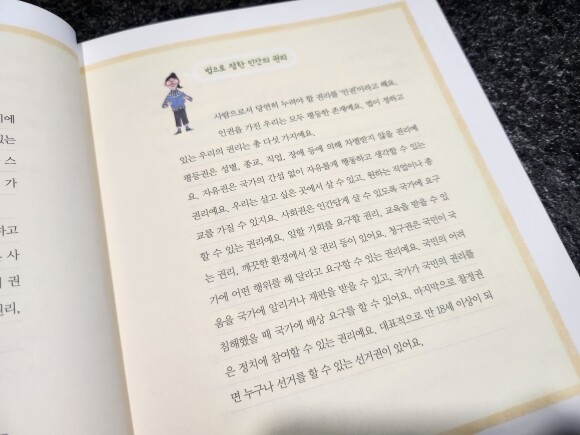 에
있는
스
가
하고
사
권
권리,
법으로 정한 인간의 권리
사람으로서 당연히 누려야 할 권리를 '인권'이라고 해요.
인권을 가진 우리는 모두 평등한 존재예요. 법이 정하고
있는 우리의 권리는 총 다섯 가지예요.
평등권은 성별, 종교, 직업, 장애 등에 의해 차별받지 않을 권리예
요. 자유권은 국가의 간섭 없이 자유롭게 행동하고 생각할 수 있는
권리예요. 우리는 살고 싶은 곳에서 살 수 있고, 원하는 직업이나 종
교를 가질 수 있지요. 사회권은 인간답게 살 수 있도록 국가에 요구
할 수 있는 권리예요. 일할 기회를 요구할 권리, 교육을 받을 수 있
는 권리, 깨끗한 환경에서 살 권리 등이 있어요. 청구권은 국민이 국
가에 어떤 행위를 해 달라고 요구할 수 있는 권리예요. 국민의 어려
움을 국가에 알리거나 재판을 받을 수 있고, 국가가 국민의 권리를
침해했을 때 국가에 배상 요구를 할 수 있어요. 마지막으로 참정권
은 정치에 참여할 수 있는 권리예요. 대표적으로 만 18세 이상이 되
면 누구나 선거를 할 수 있는 선거권이 있어요.